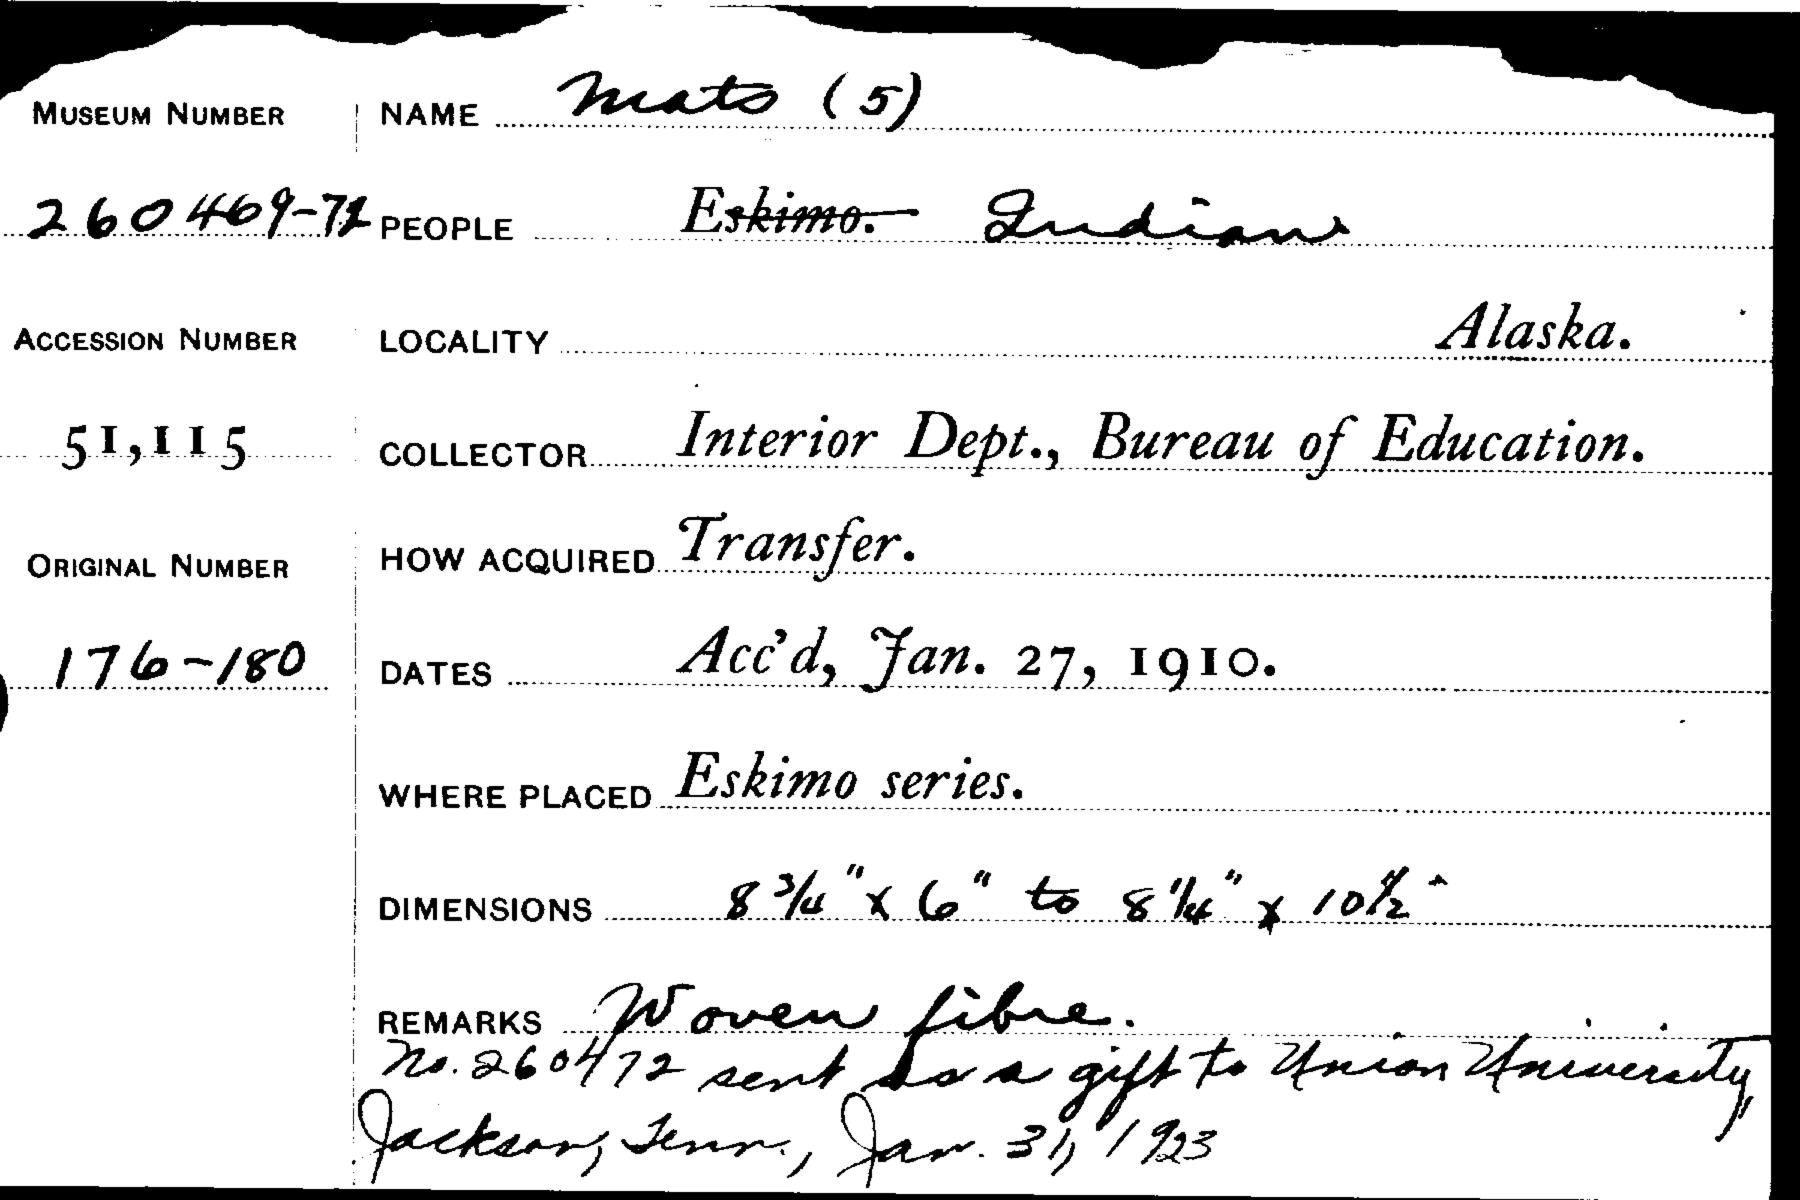 MUSEUM NUMBER NAME Mats (5)
260469-72 PEOPLE Eskimo. Indian
ACCESSION NUMBER LOCALITY Alaska.
51,115 COLLECTOR Interior Dept., Bureau of Education.
ORIGINAL NUMBER HOW ACQUIRED Transfer.
176-180 DATES Acc'd, Jan. 27, 1910.
WHERE PLACED Eskimo series.
DIMENSIONS 8 3/4" x 6" to 8 1/4" x 10 1/2"
REMARKS Woven fibre.
No. 260472 sent as a gift to Union University,
Jackson, Tenn., Jan. 31, 1923